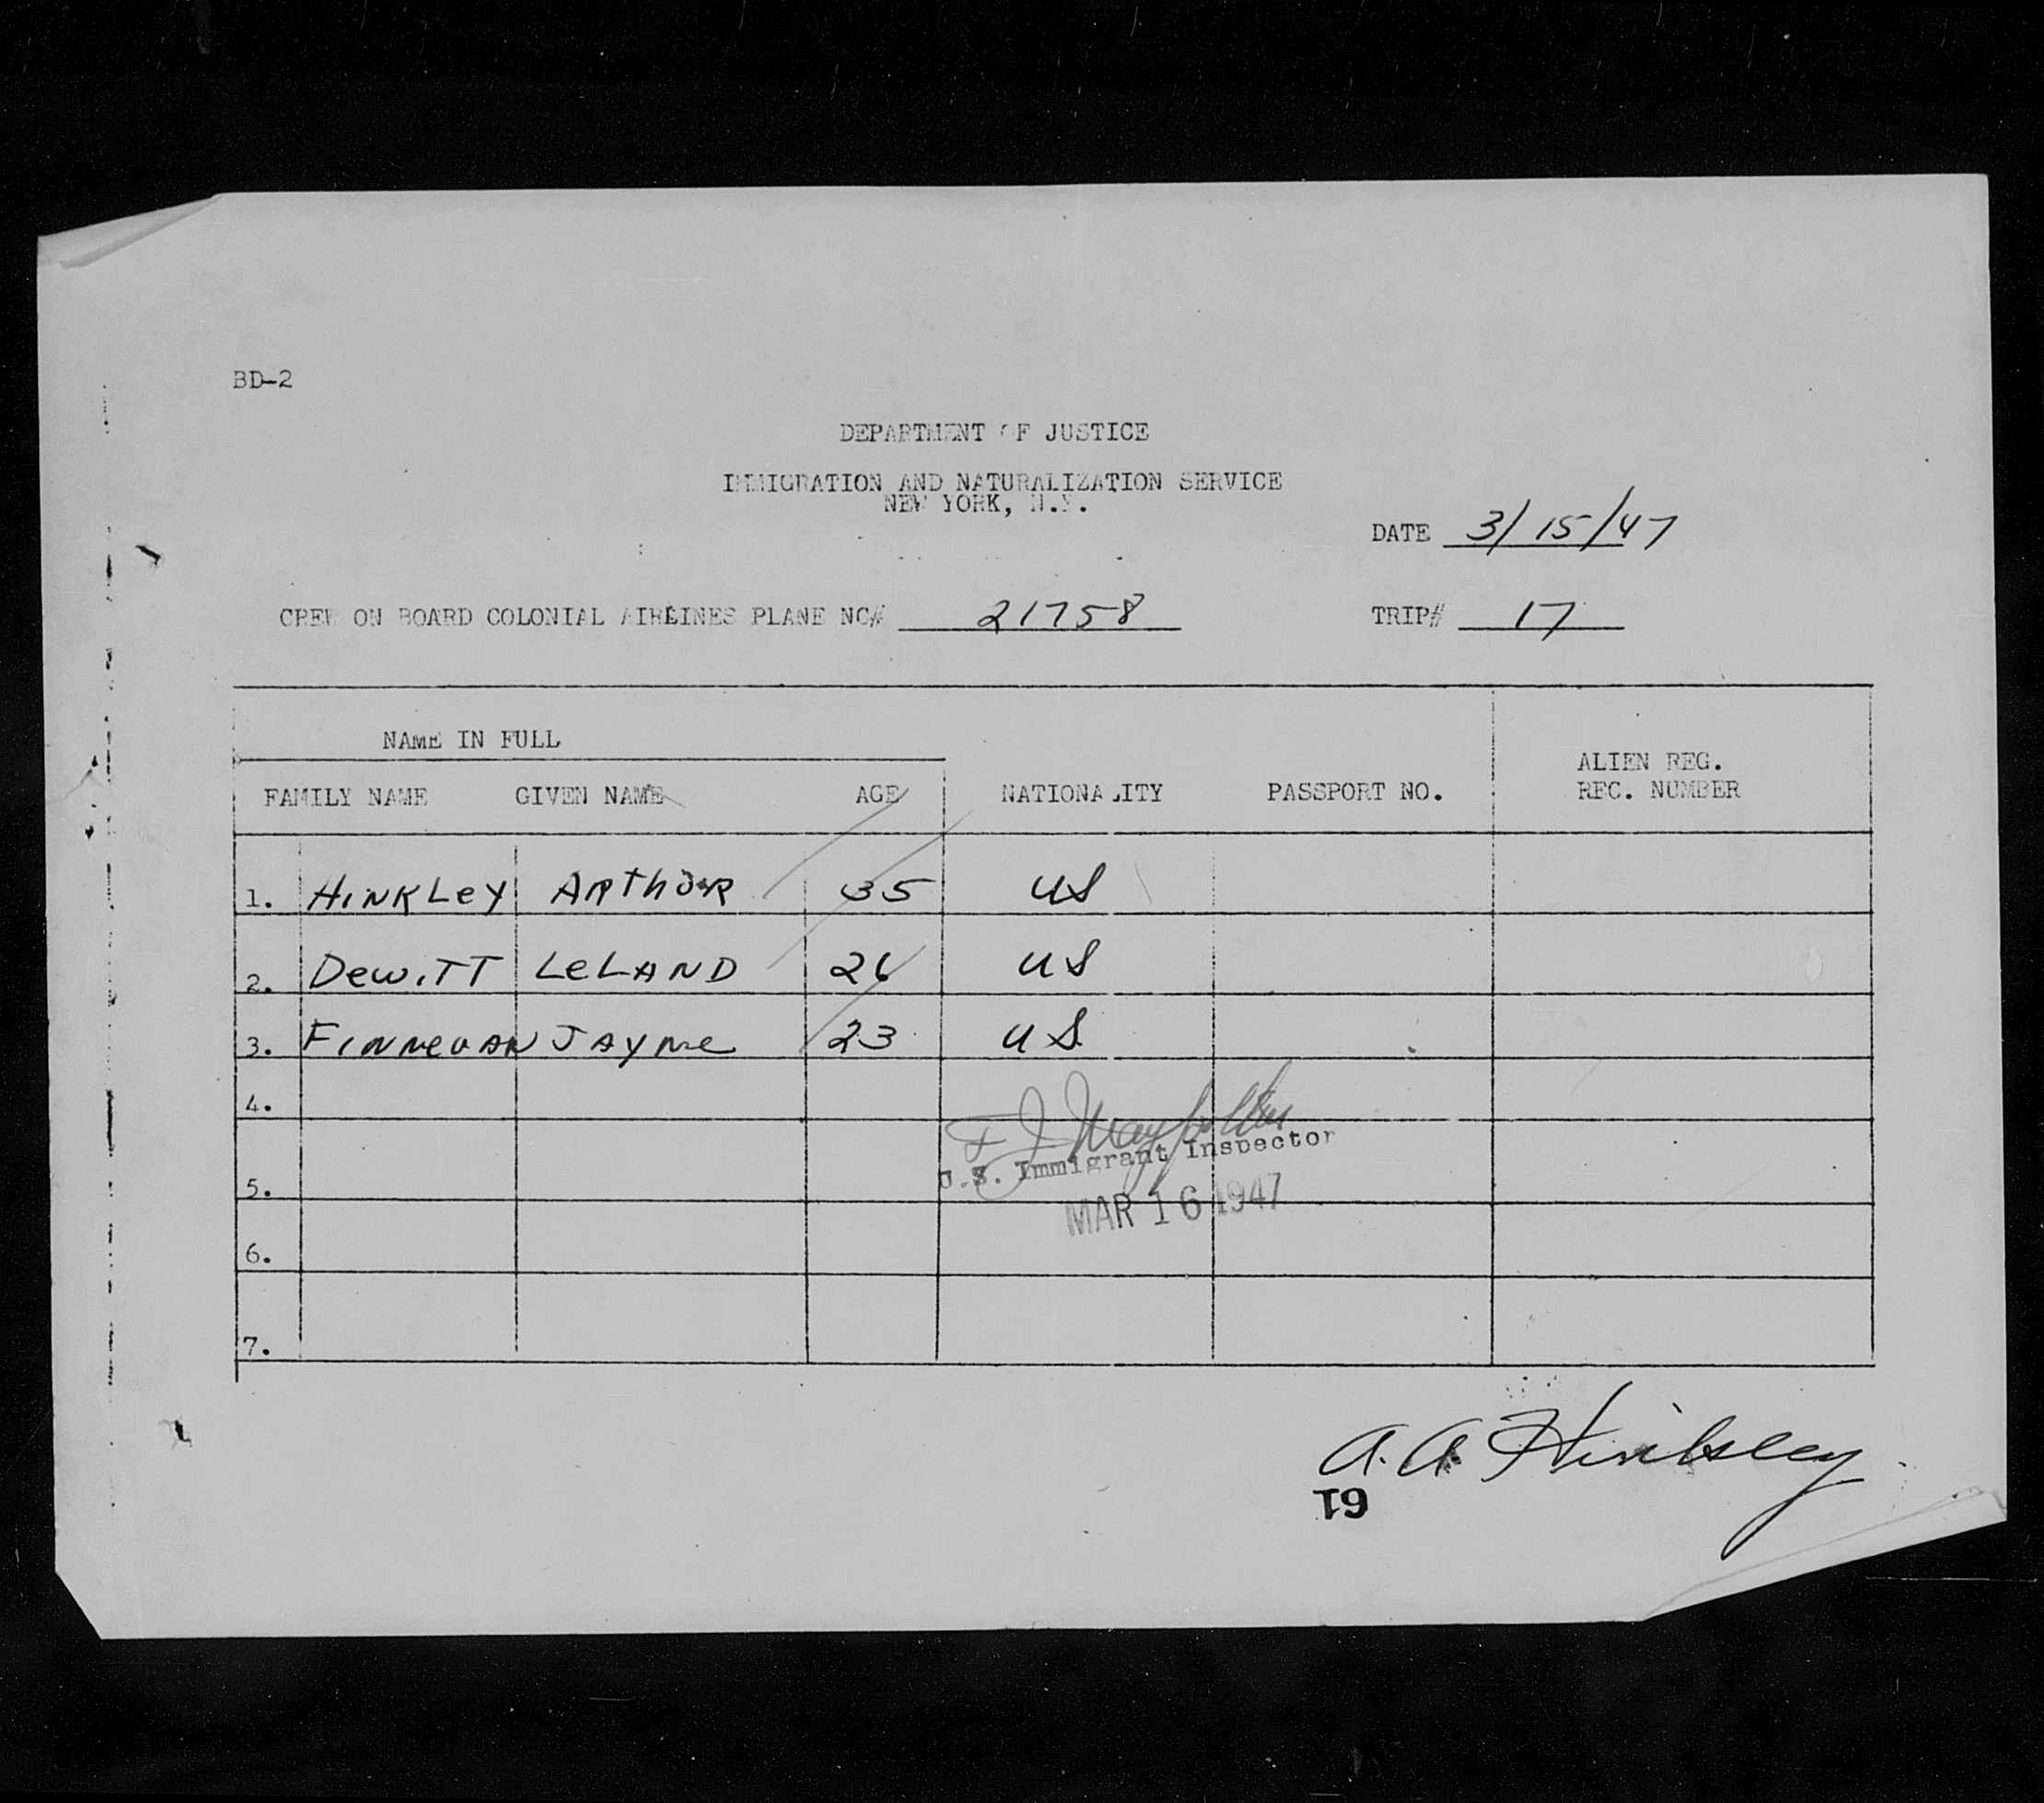 BD-2
DEPARTMENT OF JUSTICE
IMMIGRATION AND NATURALIZATION SERVICE
NEW YORK, N.Y.
DATE 3/15/47
CREW ON BOARD COLONIAL AIRLINES PLANE NC# 21758 TRIP# 17
NAME IN FULL
FAMILY NAME GIVEN NAME AGE NATIONALITY PASSPORT NO. ALIEN REG. REC. NUMBER
1. HINKLEY ARTHUR 35 US
2. DEWITT LELAND 26 US
3. FINNEGAN JAYNE 23 US
4.
U.S. Immigrant Inspector
5.
MAR 16 1947
6.
7.
A. A. Hinkley
61